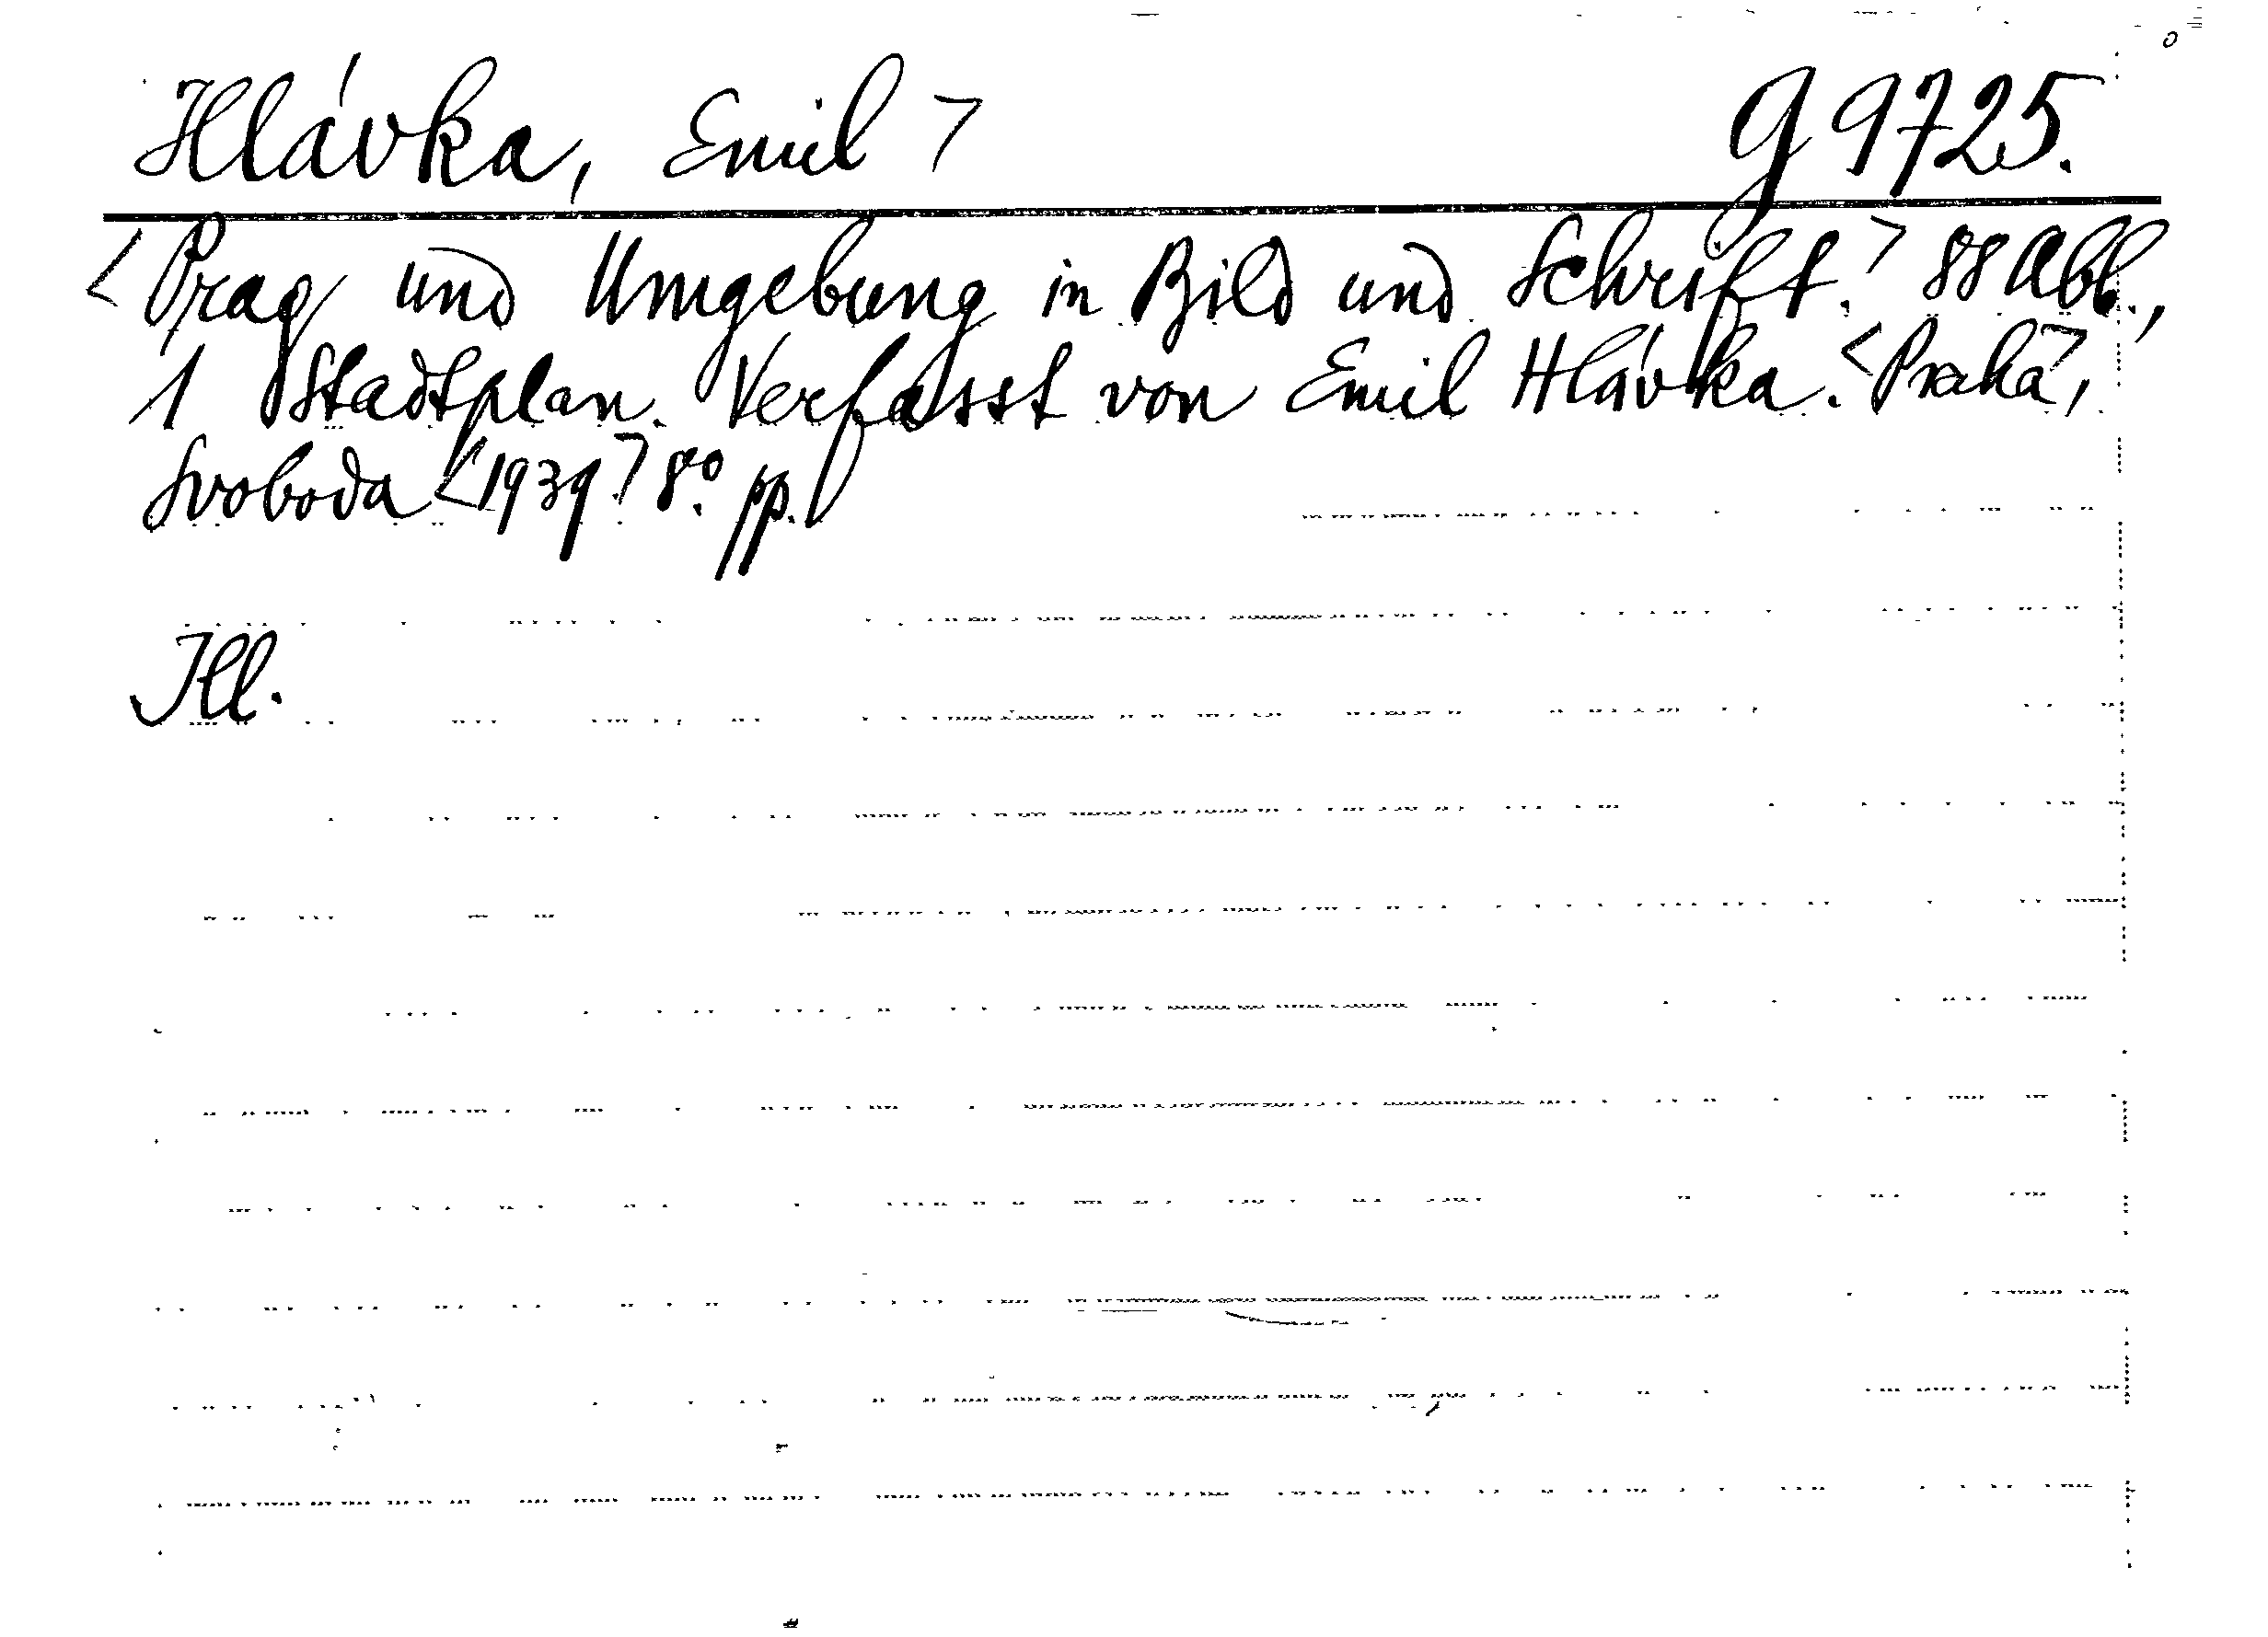 Hlávka, Emil > g 9725.
<Prag und Umgebung in Bild und Schrift.> 88 Abb.,
1 Stadtplan. Verfasst von Emil Hlávka. <Praha>,
Svoboda <1939> 8° pp.
Ill.